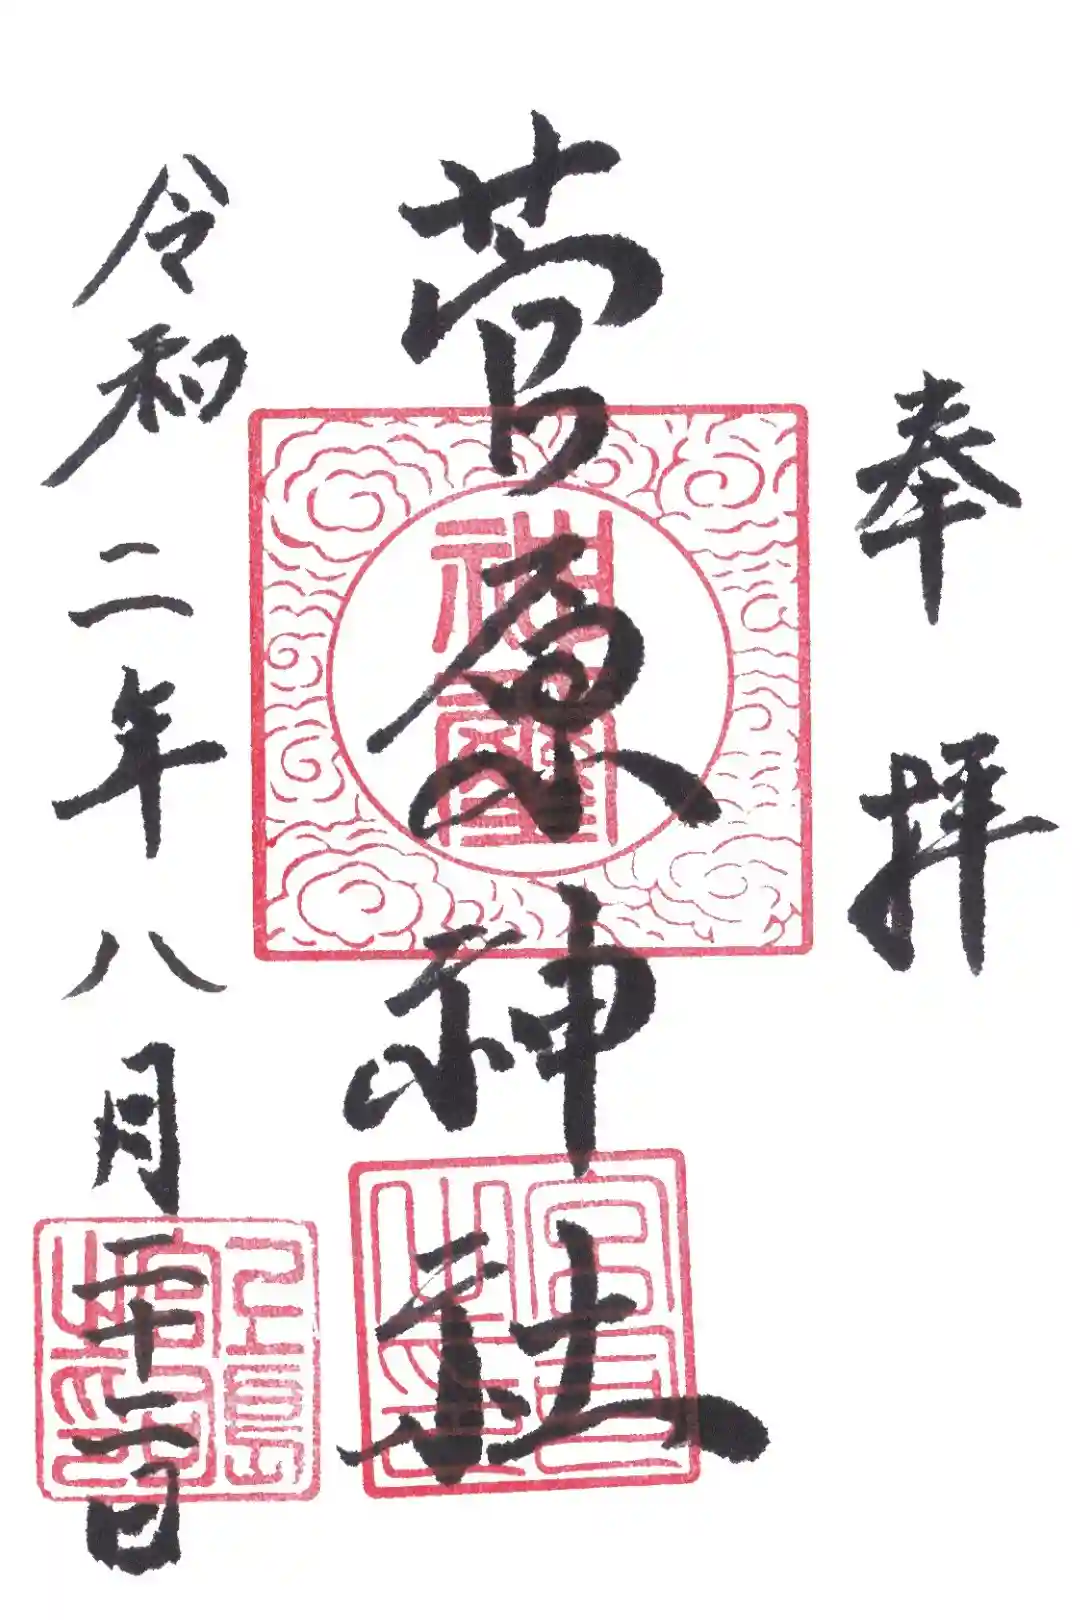 奉拝
菅原神社
令和二年八月二十二日